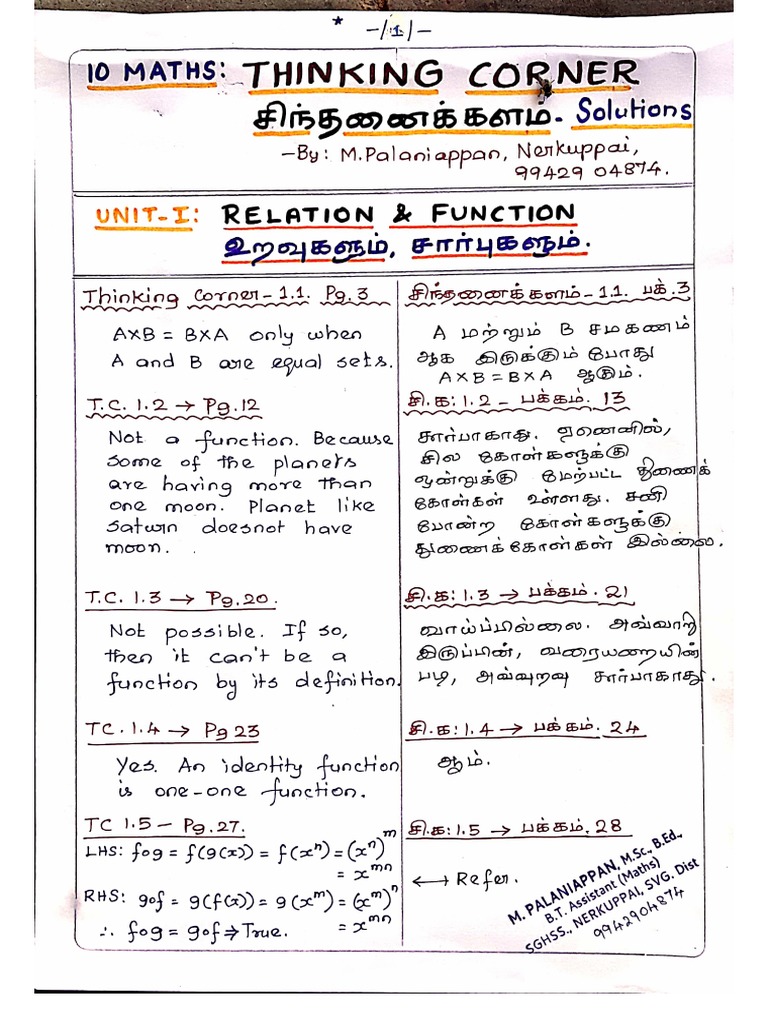 * -/1/-
10 MATHS: THINKING CORNER
சிந்தணைக்களம். Solutions
-By: M.Palaniappan, Nerkuppai,
99429 04874.
UNIT-I: RELATION & FUNCTION
உறவுகளும், சார்புகளும்.
Thinking Corner-1.1. Pg.3
AXB = BXA only when
A and B are equal sets.
T.C. 1.2 → Pg.12
Not a function. Because
some of the planets
are having more than
one moon. Planet like
Saturn doesnot have
moon.
T.C. 1.3 → Pg.20.
Not possible. If so,
then it can't be a
function by its definition.
TC. 1.4 → Pg 23
Yes. An identity function
is one-one function.
TC 1.5 - Pg.27.
LHS: fog = f(g(x)) = f(xⁿ) = (xⁿ)ᵐ
= xᵐⁿ
RHS: gof = g(f(x)) = g(xᵐ) = (xᵐ)ⁿ
= xᵐⁿ
∴ fog = gof ⇒ True.
சிந்தணைக்களம்-1.1. பக்.3
A மற்றும் B சமகணம்
ஆக இருக்கும் போது
A x B = B x A ஆகும்.
சி.க: 1.2 - பக்கம். 13
சார்பாகாது. ஏனெனில்,
சில கோள்களுக்கு
ஒன்றுக்கு மேற்பட்ட துணைக்
கோள்கள் உள்ளது. சனி
போன்ற கோள்களுக்கு
துணைக்கோள்கள் இல்லை.
சி.க: 1.3 → பக்கம். 21
வாய்ப்பில்லை. அவ்வாறு
இருப்பின், வரையறையின்
படி, அவ்வுறவு சார்பாகாது.
சி.க: 1.4 → பக்கம். 24
ஆம்.
சி.க: 1.5 → பக்கம். 28
↔ Refer.
M. PALANIAPPAN, M.Sc., B.Ed.,
B.T. Assistant (Maths)
SGHSS., NERKUPPAI, SVG. Dist
9942904874